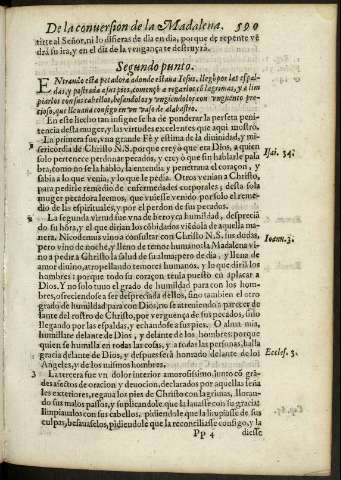 De la conversion de la Madalena. 590
tirte al Señor, ni lo difieras de dia en dia, porque de repente vẽ
drà su ira, y en el dia de la vengança te destruyrà.
Segundo punto.
ENtrando esta pecadora adonde estaua Iesus, llegò por las espal-
das, y postrada a sus pies, començò a regarlos cõ lagrimas, y a lim
piarlos con sus cabellos, besandolos y vngiendolos con vnguento pre-
cioso, que lleuaua consigo en vn vaso de alabastro.
En este hecho tan insigne se ha de ponderar la perfeta peni-
tencia desta muger, y las virtudes excelentes que aqui mostrò.
La primera fue, vna grande Fè y estima de la diuinidad, y mi-
sericordia de Christo N.S. porque creyò que era Dios, a quien
solo pertenece perdonar pecados, y creyò que sin hablarle pala
bra, como no se la hablò, la entendia y penetraua el coraçon, y
sabia a lo que venia, y lo que le pedia. Otros venian a Christo,
para pedirle remedio de enfermedades corporales; desta sola
muger pecadora leemos, que viniesse venido por solo el reme-
dio de las espirituales, y por el perdon de sus pecados.
Isai. 34.
2 La segunda virtud fue vna de heroyca humildad, desprecià
do su hõra, y el que dirian los cõbidados viẽdola de aquella ma
nera. Nicodemus vino a consultar con Christo N.S. sus dudas,
pero vino de noche, y lleno de temor humano: la Madalena vi-
no a pedir a Christo la salud de su alma; pero de dia, y llena de
amor diuino, atropellando temores humanos, y lo que dirià los
hombres: porque todo su coraçon tenia puesto en aplacar a
Dios. Y no solo tuuo el grado de humildad para con los hom-
bres, ofreciendose a ser despreciada dellos, sino tambien el otro
grado de humildad para con Dios; no se atreuiendo a parecer de
lante del rostro de Christo, por verguença de sus pecados, sino
llegando por las espaldas, y echandose a sus pies. O alma mia,
humillate delante de Dios, y delante de los hombres: porque
quien se humilla en todas las cosas, y a todas las personas, halla
gracia delante de Dios, y despues serà honrado delante de los
Angeles, y de los mismos hombres.
Ioann. 3.
Eccles. 3.
3 La tercera fue vn dolor interior amorosissimo, junto cõ grã-
des afectos de oracion y deuocion, declarados por aquellas seña
les exteriores, regaua los pies de Christo con lagrimas, lloran-
do sus malos passos, y suplicandole que la lauasse con su gracia:
limpiaualos con sus cabellos, pidiendole que la limpiasse de sus
culpas, besauselos, pidiendole que la reconciliasse consigo, y la
Pp 4 diesse